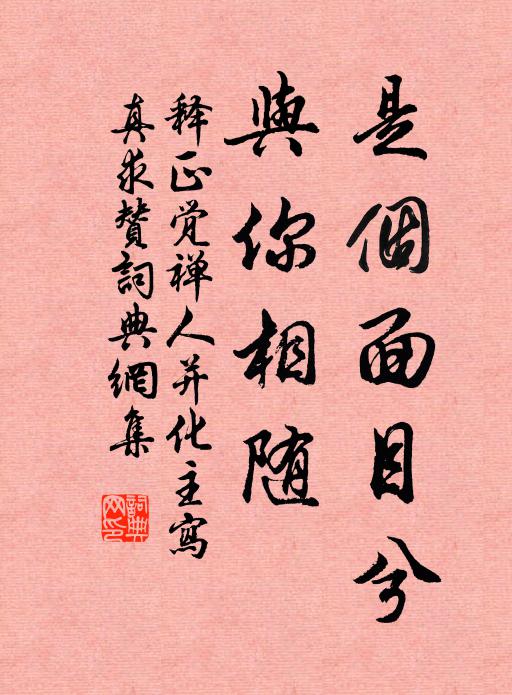 是個面目兮
與你相随
释正觉禅人并化主寫
真求赞詞典網集
詞典
网印